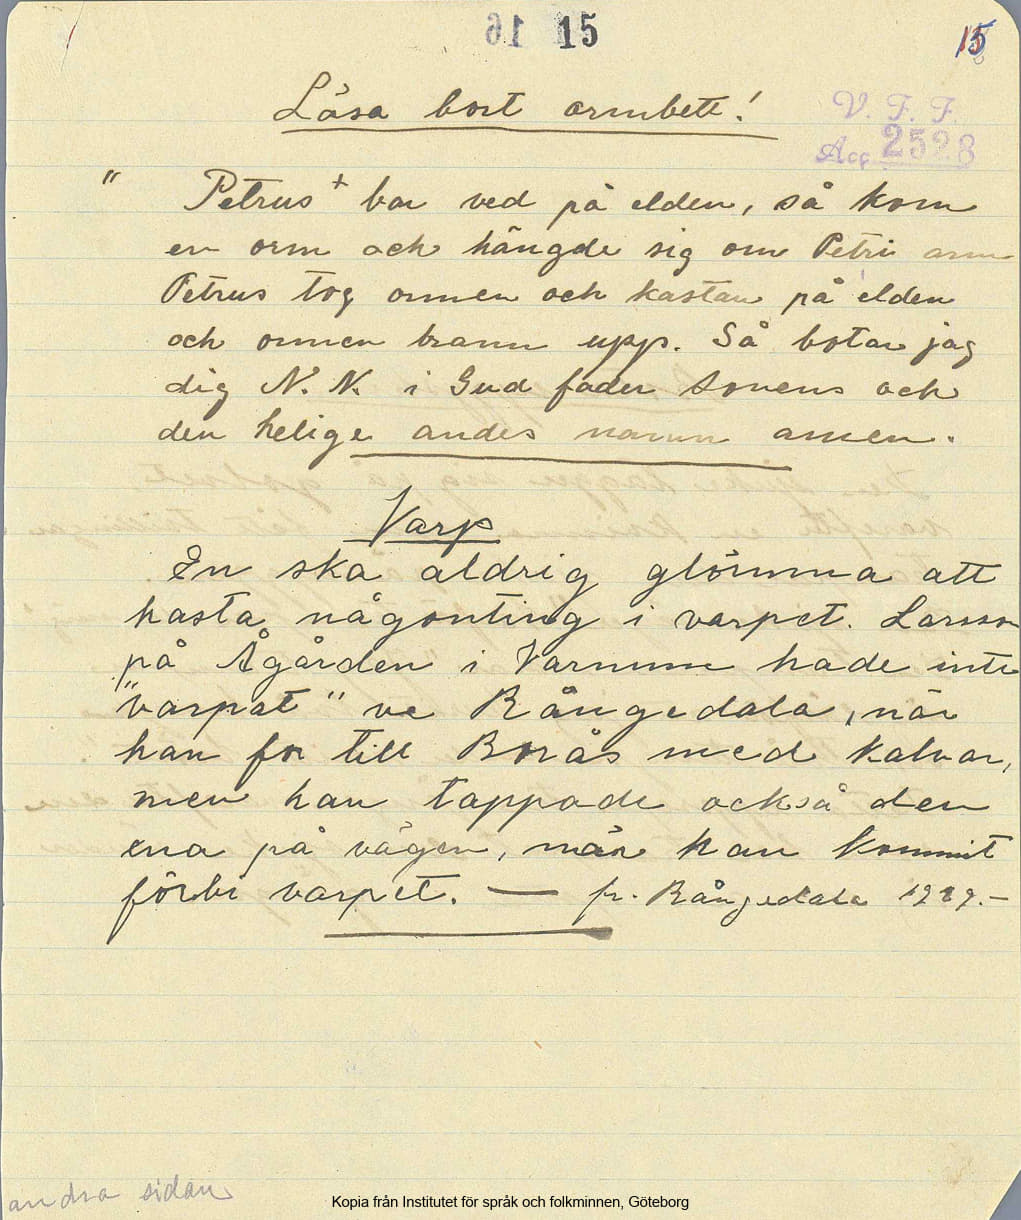 16 15
15
Läsa bort ormbett!
V. F. F.
Acc 2528
" Petrus + bar ved på elden, så kom
en orm och hängde sig om Petri arm
Petrus tog ormen och kastan på elden
och ormen brann upp. Så botar jag
dig N. N. i Gud fader sonens och
den helige andes namn amen.
Varp
En ska aldrig glömma att
kasta någonting i varpet. Larsson
på Ågården i Varnum hade inte
"varpat" ve Rångedala, när
han for till Borås med kalvar,
men han tappade också den
ena på vägen, när han kommit
förbi varpet. — fr. Rångedala 1929.—
andra sidan
Kopia från Institutet för språk och folkminnen, Göteborg